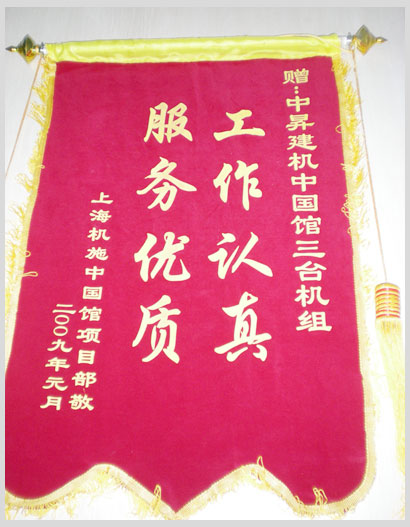 赠:中昇建机中国馆三台机组
工作认真
服务优质
上海机施中国馆项目部敬
二00九年元月